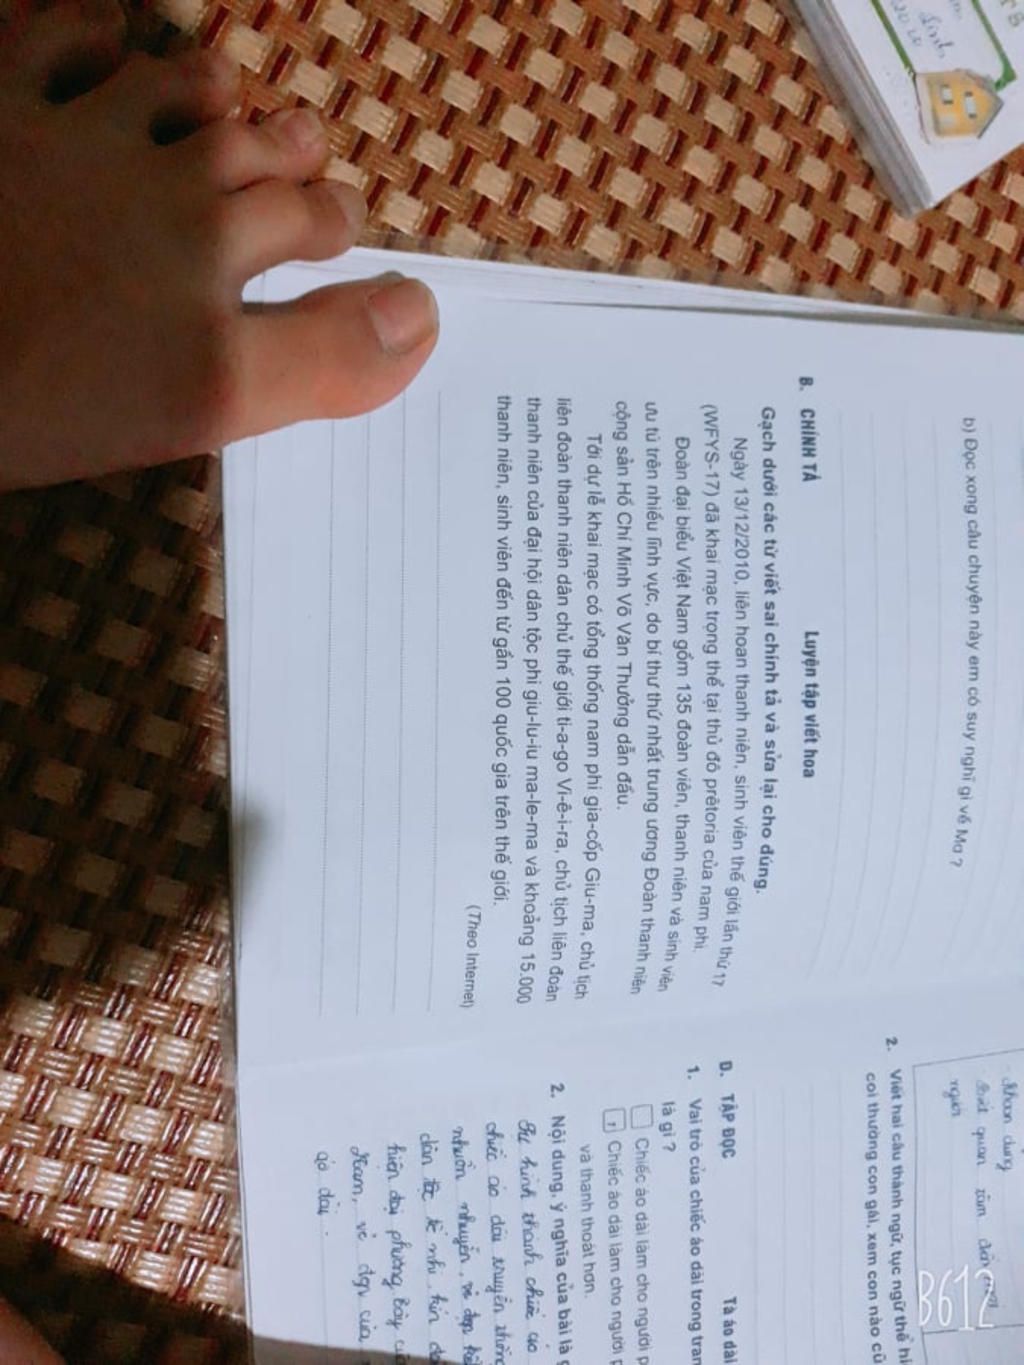 b) Đọc xong câu chuyện này em có suy nghĩ gì về Mơ ?
B. CHÍNH TẢ
Luyện tập viết hoa
Gạch dưới các từ viết sai chính tả và sửa lại cho đúng.
Ngày 13/12/2010, liên hoan thanh niên, sinh viên thế giới lần thứ 17
(WFYS-17) đã khai mạc trọng thể tại thủ đô prêtoria của nam phi.
Đoàn đại biểu Việt Nam gồm 135 đoàn viên, thanh niên và sinh viên
ưu tú trên nhiều lĩnh vực, do bí thư thứ nhất trung ương Đoàn thanh niên
cộng sản Hồ Chí Minh Võ Văn Thưởng dẫn đầu.
Tới dự lễ khai mạc có tổng thống nam phi gia-cốp Giu-ma, chủ tịch
liên đoàn thanh niên dân chủ thế giới ti-a-go Vi-ê-i-ra, chủ tịch liên đoàn
thanh niên của đại hội dân tộc phi giu-lu-iu ma-le-ma và khoảng 15.000
thanh niên, sinh viên đến từ gần 100 quốc gia trên thế giới.
(Theo Internet)
khoan dung
quan tâm đến
người
2. Viết hai câu thành ngữ, tục ngữ thể
coi thường con gái, xem con nào
D. TẬP ĐỌC
Tà áo dài
1. Vai trò của chiếc áo dài trong
là gì ?
Chiếc áo dài làm cho người
Chiếc áo dài làm cho người
và thanh thoát hơn.
2. Nội dung, ý nghĩa của bài là
Sự hình thành chiếc áo
chiếc áo dài truyền thống
nhuần nhuyễn, vẻ đẹp
dân tộc tế nhị, kín
hiện đại phương Tây
Nam, vẻ đẹp của
áo dài.
B612